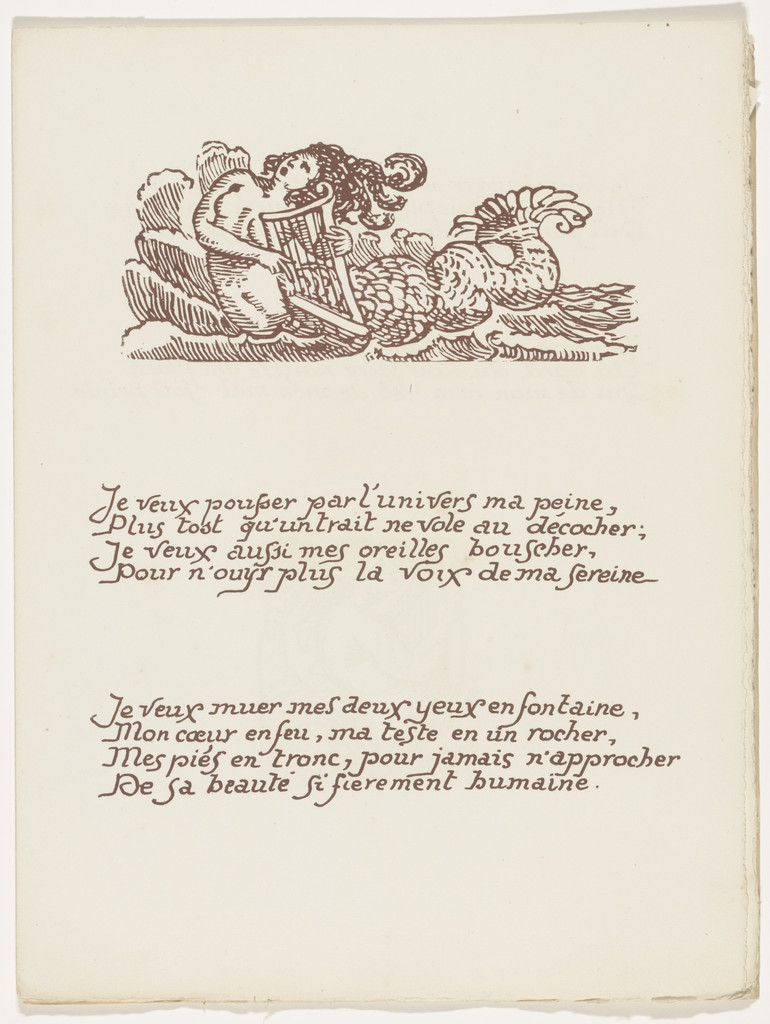 Je veux pouſser par l'univers ma peine,
Plus tost qu'un trait ne vole au décocher;
Je veux auſsi mes oreilles bouscher,
Pour n'ouÿr plus la voix de ma ſereine
Je veux muer mes deux yeux en fontaine,
Mon cœur en feu, ma teste en un rocher,
Mes piés en tronc, pour jamais n'approcher
De ſa beauté ſi fierement humaine.